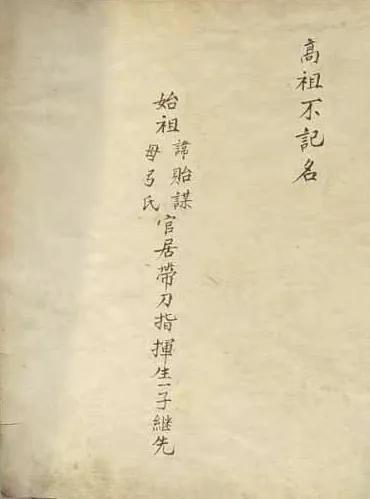 高祖不記名
始祖諱貽謀母弓氏官居帶刀指揮生一子繼先